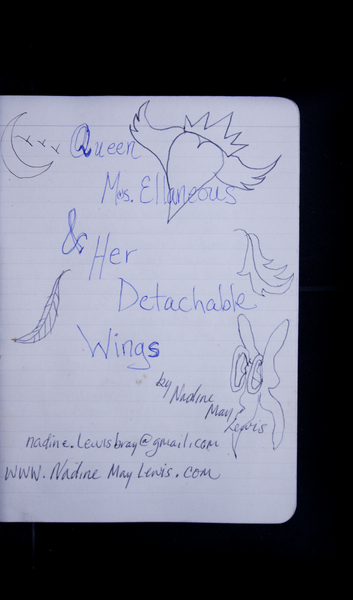 Queen
Mrs. Ellaneous
& Her
Detachable
Wings
by Nadine
May
Lewis
nadine.lewisbray@gmail.com
www.NadineMayLewis.com